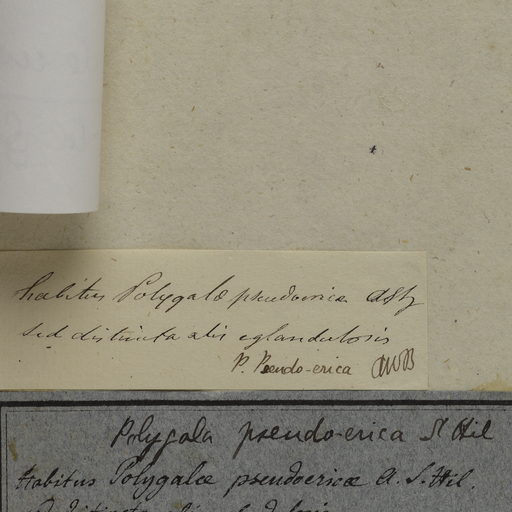 habitus Polygalæ pseudoericæ ASH
sed distincta alis eglandulosis
P. Pseudo-erica AWB
Polygala pseudo-erica St Hil
Habitus Polygalæ pseudoericæ A. S. Hil.